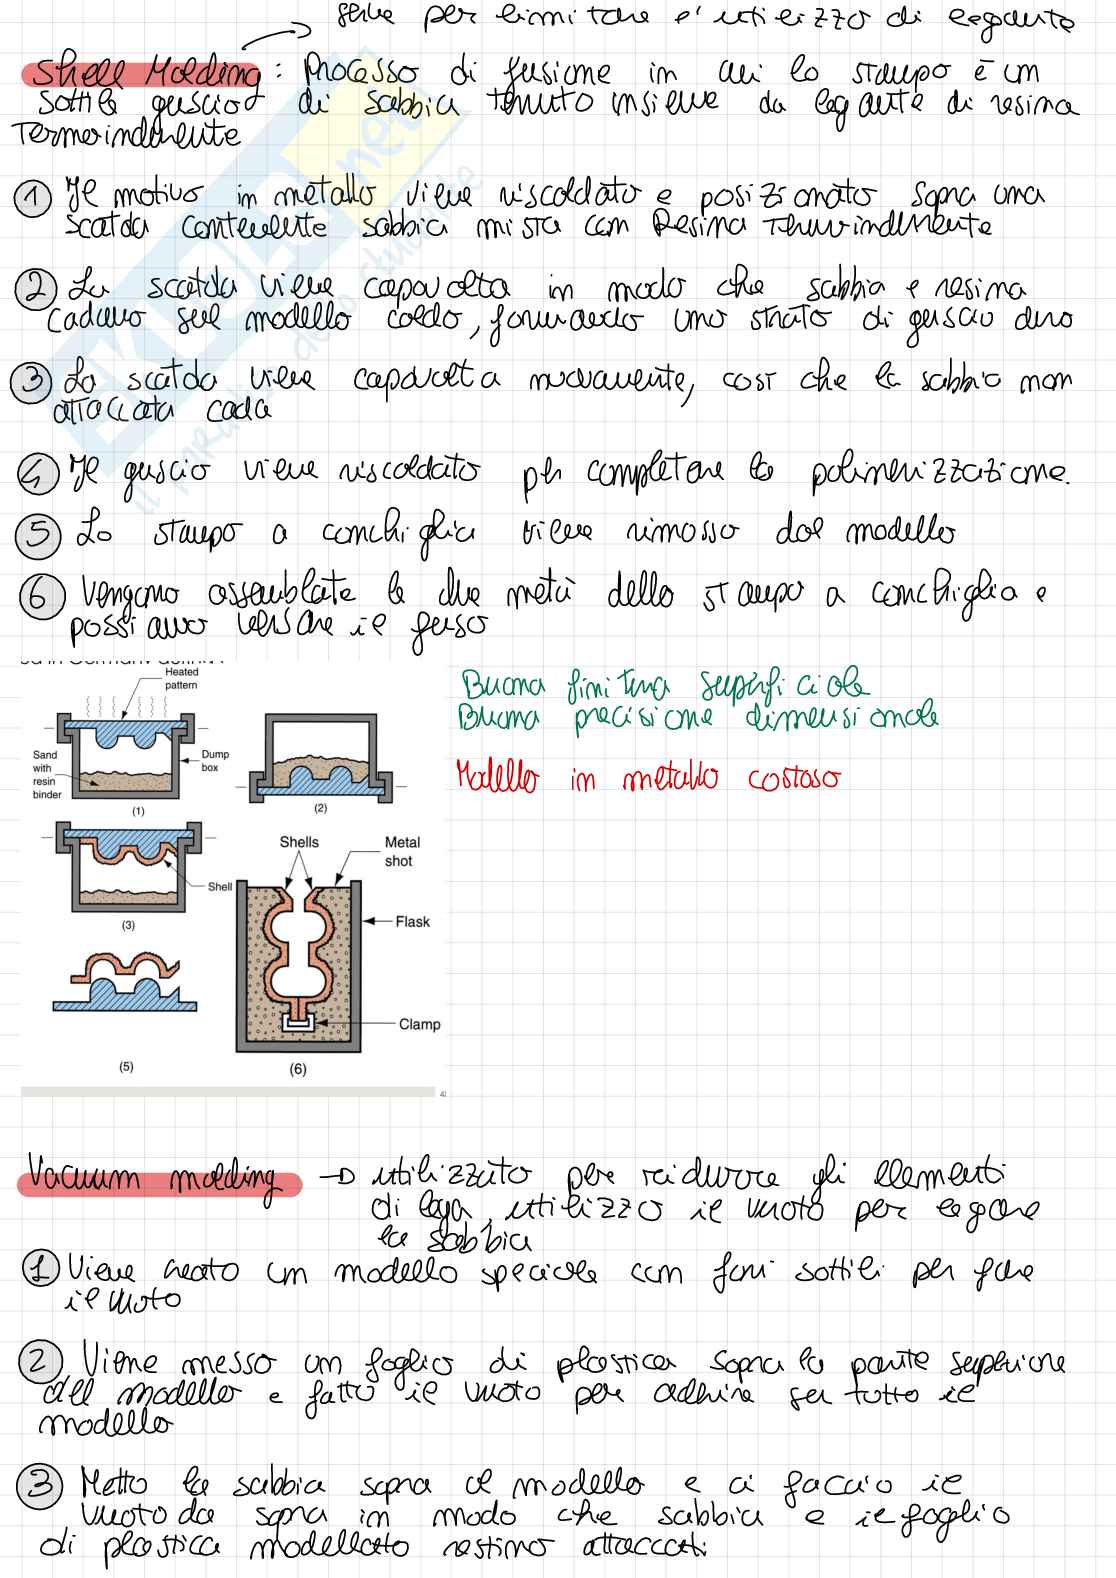 serve per limitare l'utilizzo di legante
Shell Molding : Processo di fusione in cui lo stampo è un
sottile guscio di sabbia tenuto insieme da legante di resina
termoindurente
1 Il motivo in metallo viene riscaldato e posizionato sopra una
scatola contenente sabbia mista con Resina Termoindurente
2 La scatola viene capovolta in modo che sabbia e resina
cadano sul modello caldo, formando uno strato di guscio duro
3 La scatola viene capovolta nuovamente, così che la sabbia non
attaccata cada
4 Il guscio viene riscaldato per completare la polimerizzazione.
5 Lo stampo a conchiglia viene rimosso dal modello
6 Vengono assemblate le due metà dello stampo a conchiglia e
possiamo versare il fuso
Heated
pattern
Sand
with
resin
binder
Dump
box
(1)
(2)
Shell
(3)
(5)
Shells
Metal
shot
Flask
Clamp
(6)
Buona finitura superficiale
Buona precisione dimensionale
Modello in metallo costoso
Vacuum molding → utilizzato per ridurre gli elementi
di lega, utilizzo il vuoto per legare
la sabbia
1 Viene creato un modello speciale con fori sottili per fare
il vuoto
2 Viene messo un foglio di plastica sopra la parte superiore
del modello e fatto il vuoto per aderire su tutto il
modello
3 Metto la sabbia sopra al modello e ci faccio il
vuoto da sopra in modo che sabbia e il foglio
di plastica modellato restino attaccati